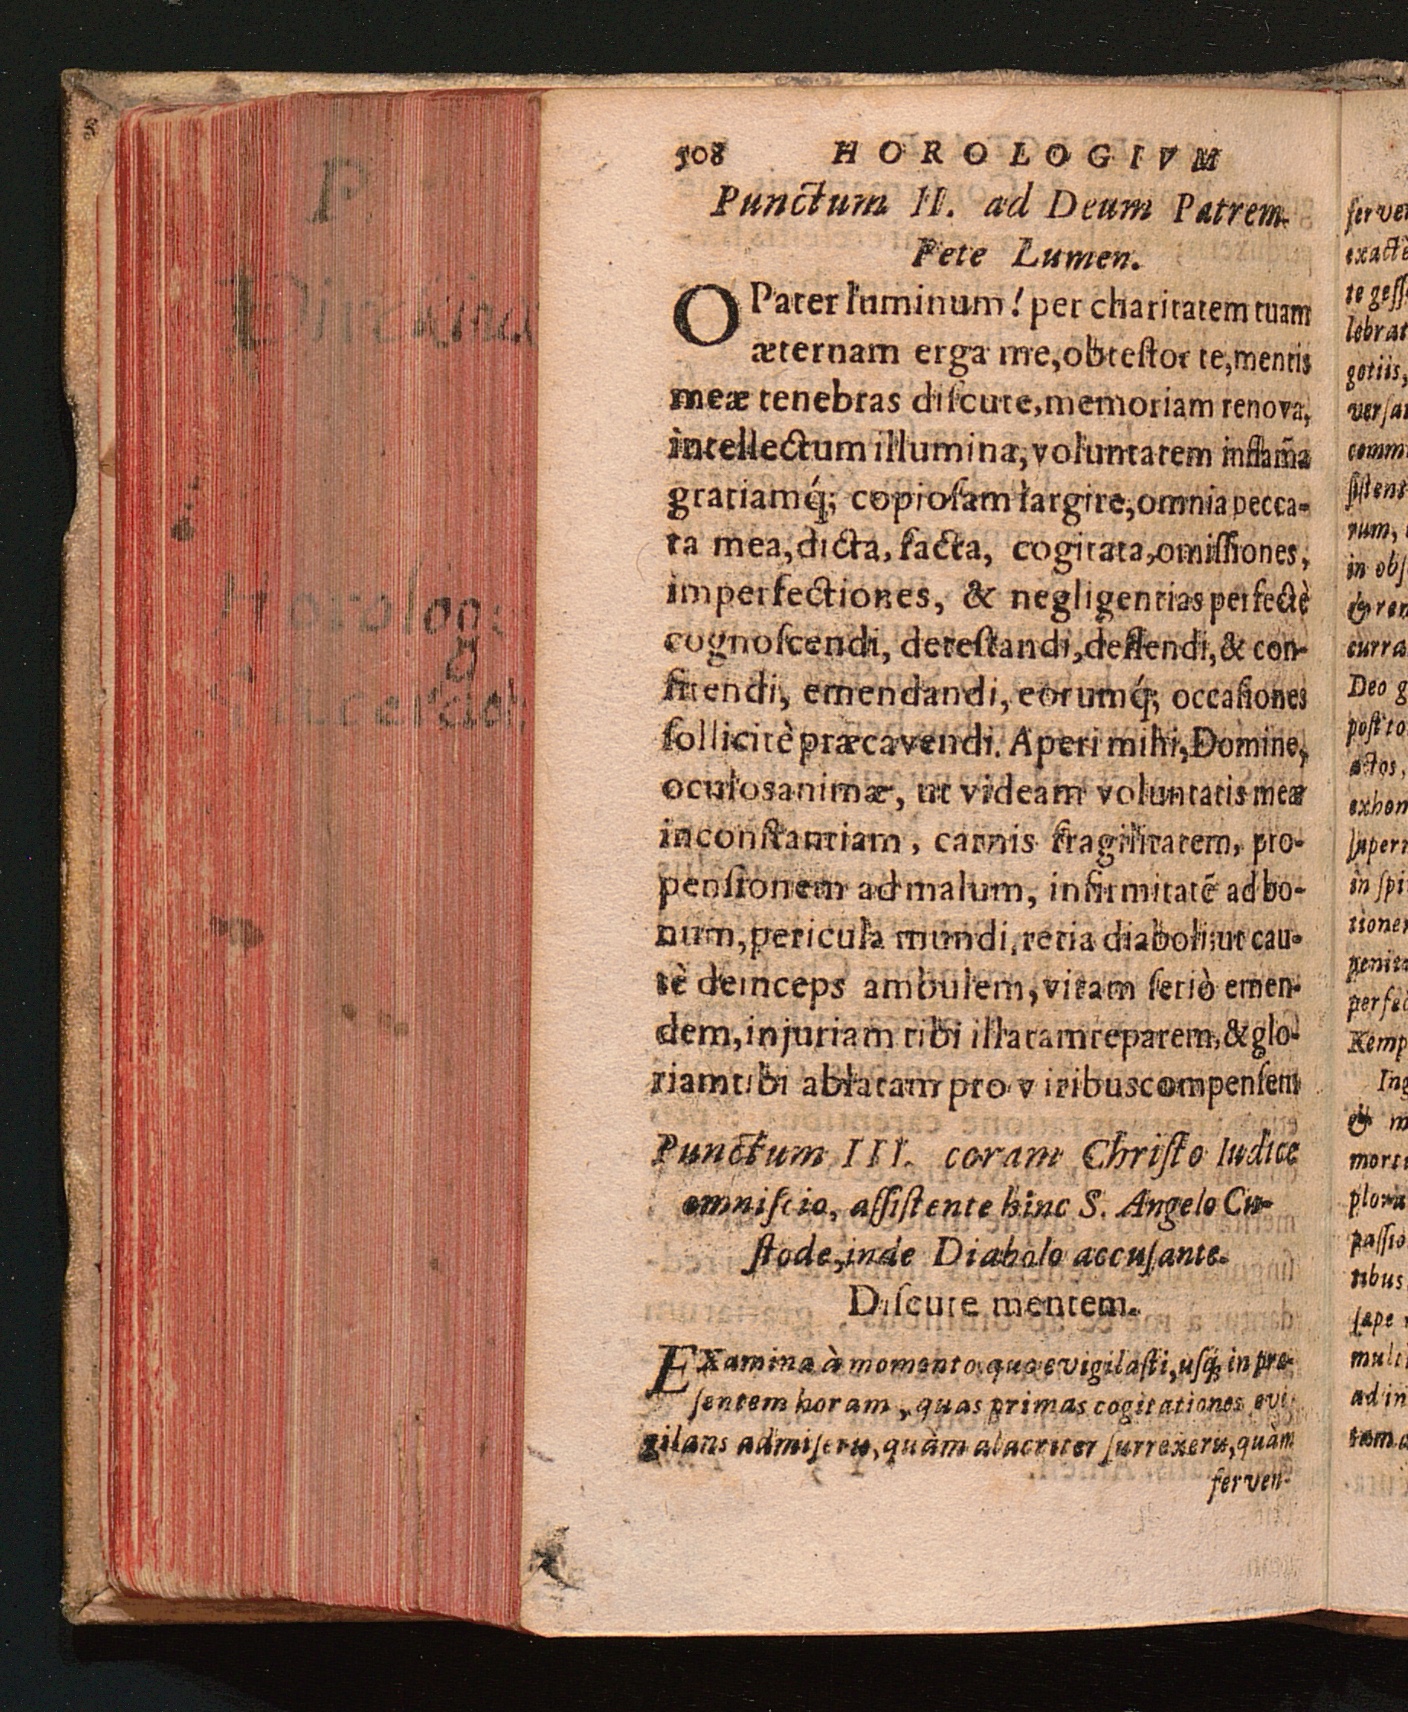 508 HOROLOGIVM
Punctum II. ad Deum Patrem.
Pete Lumen.
O Pater luminum! per charitatem tuam
æternam erga me, obteſtor te, mentis
meæ tenebras diſcute, memoriam renova,
intellectum illumina, voluntatem inflam̃a
gratiamq́; copioſam largire, omnia pecca-
ta mea, dicta, facta, cogitata, omiſſiones,
imperfectiones, & negligentias perfectè
cognoſcendi, deteſtandi, deflendi, & con-
fitendi, emendandi, eorumq́; occaſiones
ſollicitè præcavendi. Aperi mihi, Domine,
oculos animæ, ut videam voluntatis meæ
inconſtantiam, carnis fragilitatem, pro-
penſionem ad malum, infirmitatẽ ad bo-
num, pericula mundi, retia diaboli: ut cau-
tè deinceps ambulem, vitam ſeriò emen-
dem, injuriam tibi illatam reparem, & glo-
riam tibi ablatam pro viribus compenſem
Punctum III. coram Chriſto Iudice
omniſcio, aſſiſtente hinc S. Angelo Cu-
ſtode, inde Diabolo accuſante.
Diſcute mentem.
EXamina à momento quo evigilaſti, uſq́; in præ-
ſentem horam, quas primas cogitationes evi-
gilans admiſeris, quàm alacriter ſurrexeris, quàm
ferven-
P
Horolog
ferven
exactè
te geſſ
lebrat
gotiis,
verſar
comm
ſiſtent
rum,
in obſ
& ren
curra
Deo g
poſito
actos,
exhom
ſupern
in ſpi
tionem
penita
perfec
Kemp
Ing
& m
morti
plora
paſſio
tibus
ſæpe
mult
ad in